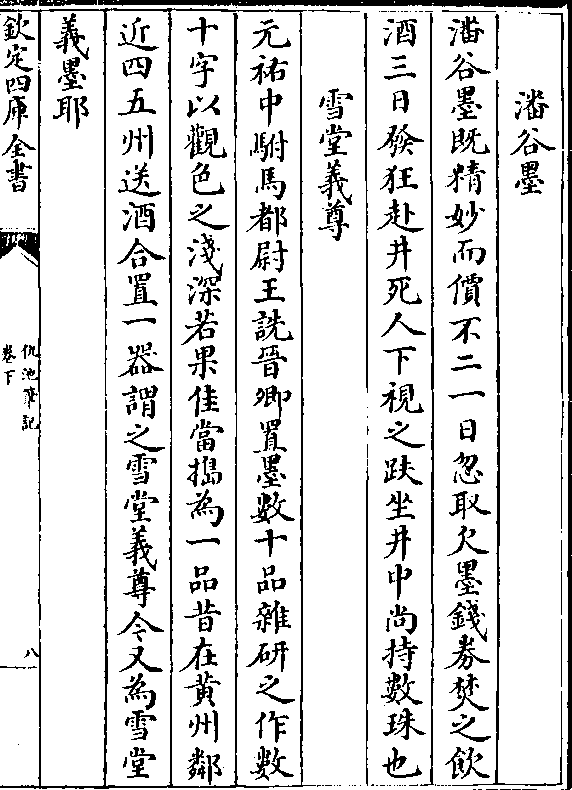 潘谷墨
潘谷墨既精妙而價不二一日忽取欠墨錢券焚之飲
酒三日發狂赴井死人下視之趺坐井中尚持數珠也
雪堂義尊
元祐中駙馬都尉王詵晉卿置墨數十品雜研之作數
十字以觀色之淺深若果佳當搗為一品昔在黄州鄰
近四五州送酒合置一器謂之雪堂義尊今又為雪堂
義墨耶
欽定四庫全書
仇池筆記
卷下
八